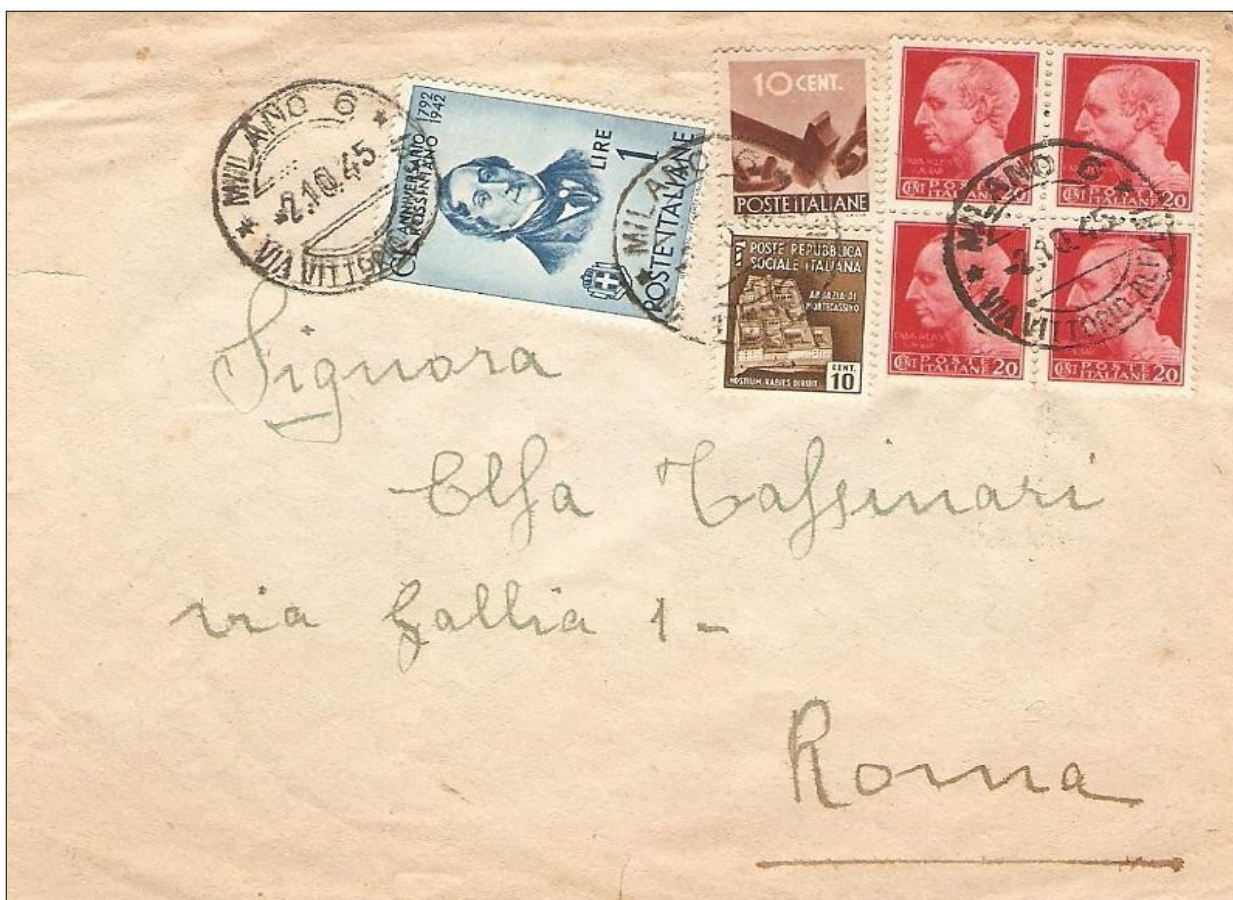 MILANO 6
-2.10.45
VIA VITTOR
CL ANNIVERSARIO 1792
ROSSINIANO 1942
LIRE 1
POSTE ITALIANE
MILANO
10 CENT.
POSTE ITALIANE
XXI POSTE REPUBBLICA
SOCIALE ITALIANA
ABBAZIA DI
MONTECASSINO
HOSTIUM RABIES DIRUIT
CENT.
10
CENT POSTE ITALIANE 20
CENT POSTE ITALIANE 20
CENT POSTE ITALIANE 20
CENT POSTE ITALIANE 20
MILANO 6
-2.10.45
VIA VITTORIO
Signora
Elsa Tassinari
via Gallia 1-
Roma